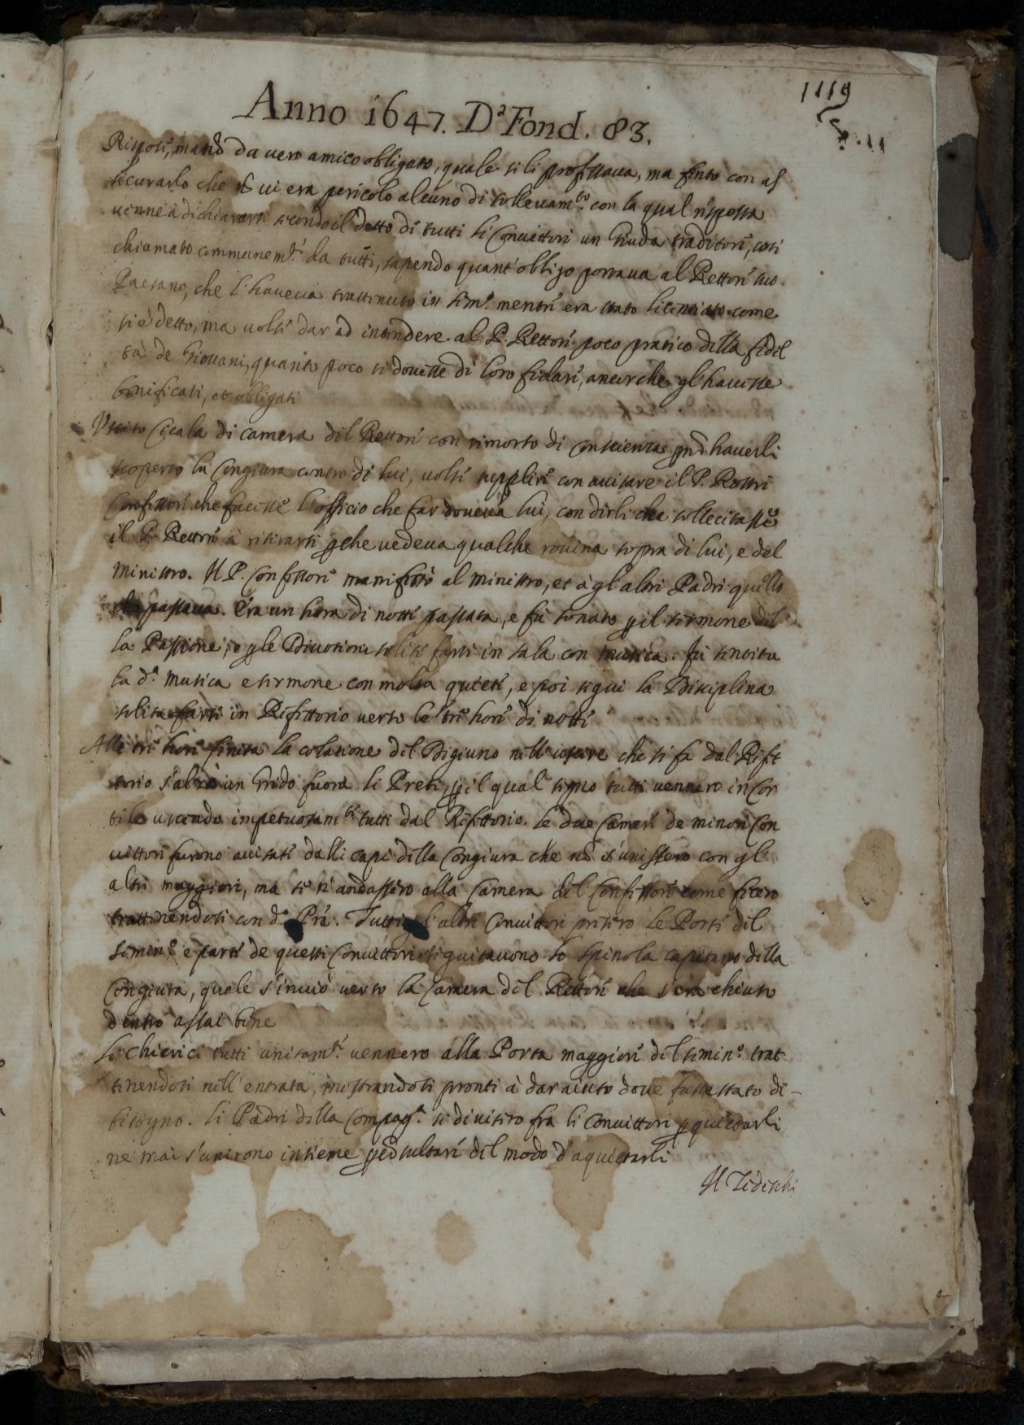 1119
Anno 1647. Dª Fond. 83.
Rispose, non da vero amico obligato, quale se li professava, ma finto con as
sicurarlo che nō vi era pericolo alcuno di sollevam.to con la qual risposta
venne à dichiararsi secondo il detto di tutti li Convittori un Giuda traditore, così
chiamato communem.te da tutti, sapendo quant'obligo portava al Rettore suo
Paesano, che l'haveva trattenuto in Sem.o mentre era stato licentiato come
si è detto, ma volse dar ad intendere al P. Rettore poco pratico della fidel
tà de Giovani, quanto poco si dovesse di loro fidare, ancorche gl'havesse
beneficati, et obligati
Uscito Cicala di camera del Rettore con rimorso di conscienza p nō haverli
scoperto la Congiura contro di lui, volse supplire con avisare il P.
Confessore che facesse l'officio che far doveva lui, con dirli che sollecitasse
il P. Rettore à ritirarsi pche vedeva qualche rovina sopra di lui, e del
Ministro. Il P. Confessore manifestò al Ministro, et à gl'altri Padri quello
che passava. Era un hora di notte passata, e fu sonato p il sermone del
la Passione, e p le Divotioni solite farsi in sala con musica. fu sentita
la d.ª musica e sermone con molta quiete, e poi seguì la Disciplina
solita farsi in Refettorio verso le tre hore di notte
Alle tre hore finita la colatione del Digiuno nell'uscire che si fa dal Refet
torio s'alzò un grido fuora li Preti, p il qual segno tutti vennero in Cor
tile uscendo impetuosam.te tutti dal Refettorio. Le due Camere de minori Con
vittori furono avisati dalli capi della Congiura che nō s'unissero con gl'
altri maggiori, ma se n'andassero alla Camera del Confessore come fecero
trattenendosi con d.º Pre. Tutti l'altri Convittori presero le Porte del
Semin.º e parte de questi Convittori seguitavono lo Spinola capitano della
Congiura, quale s'inviò verso la Camera del Rettore che s'era chiuso
dentro assai bene
Li Chierici tutti unitam.te vennero alla Porta maggiore del Semin.º trat
tenendosi nell'entrata, mostrandosi pronti à dar aiuto dove fusse stato di
bisogno. Li Padri della Compag.ª si divisero fra li Convittori p quietarli
ne mai s'unirono insieme p consultare del modo d'aquietarli
Il Tedeschi